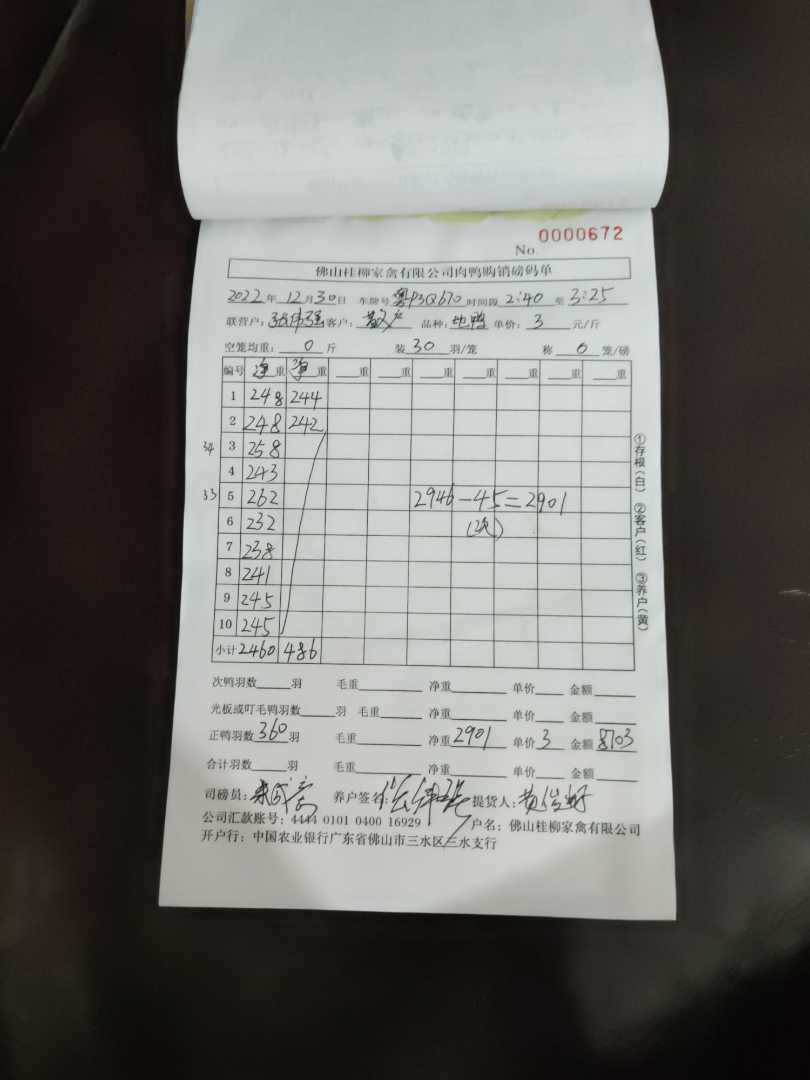 No. 0000672
佛山桂柳家禽有限公司肉鸭购销磅码单
2022年12月30日 车牌号 粤P3Q670 时间段 2:40 至 3:25
联营户: 张伟强 客户: 散户 品种: 土鸭 单价: 3 元/斤
空笼均重: 0 斤 装 30 羽/笼 称 6 笼/磅
编号 净重 净重 重 重 重 重 重 重 重
1 248 244
2 248 242
34 3 258
4 243
33 5 262 2946-45=2901
6 232
7 238
8 241
9 245
10 245
小计 2460 486
①存根(白) ②客户(红) ③养户(黄)
次鸭羽数 羽 毛重 净重 单价 金额
光板或叮毛鸭羽数 羽 毛重 净重 单价 金额
正鸭羽数 360 羽 毛重 净重 2901 单价 3 金额 8703
合计羽数 羽 毛重 净重 单价 金额
司磅员: 养户签名: 提货人:
公司汇款账号: 4444 0101 0400 16929 户名: 佛山桂柳家禽有限公司
开户行: 中国农业银行广东省佛山市三水区三水支行